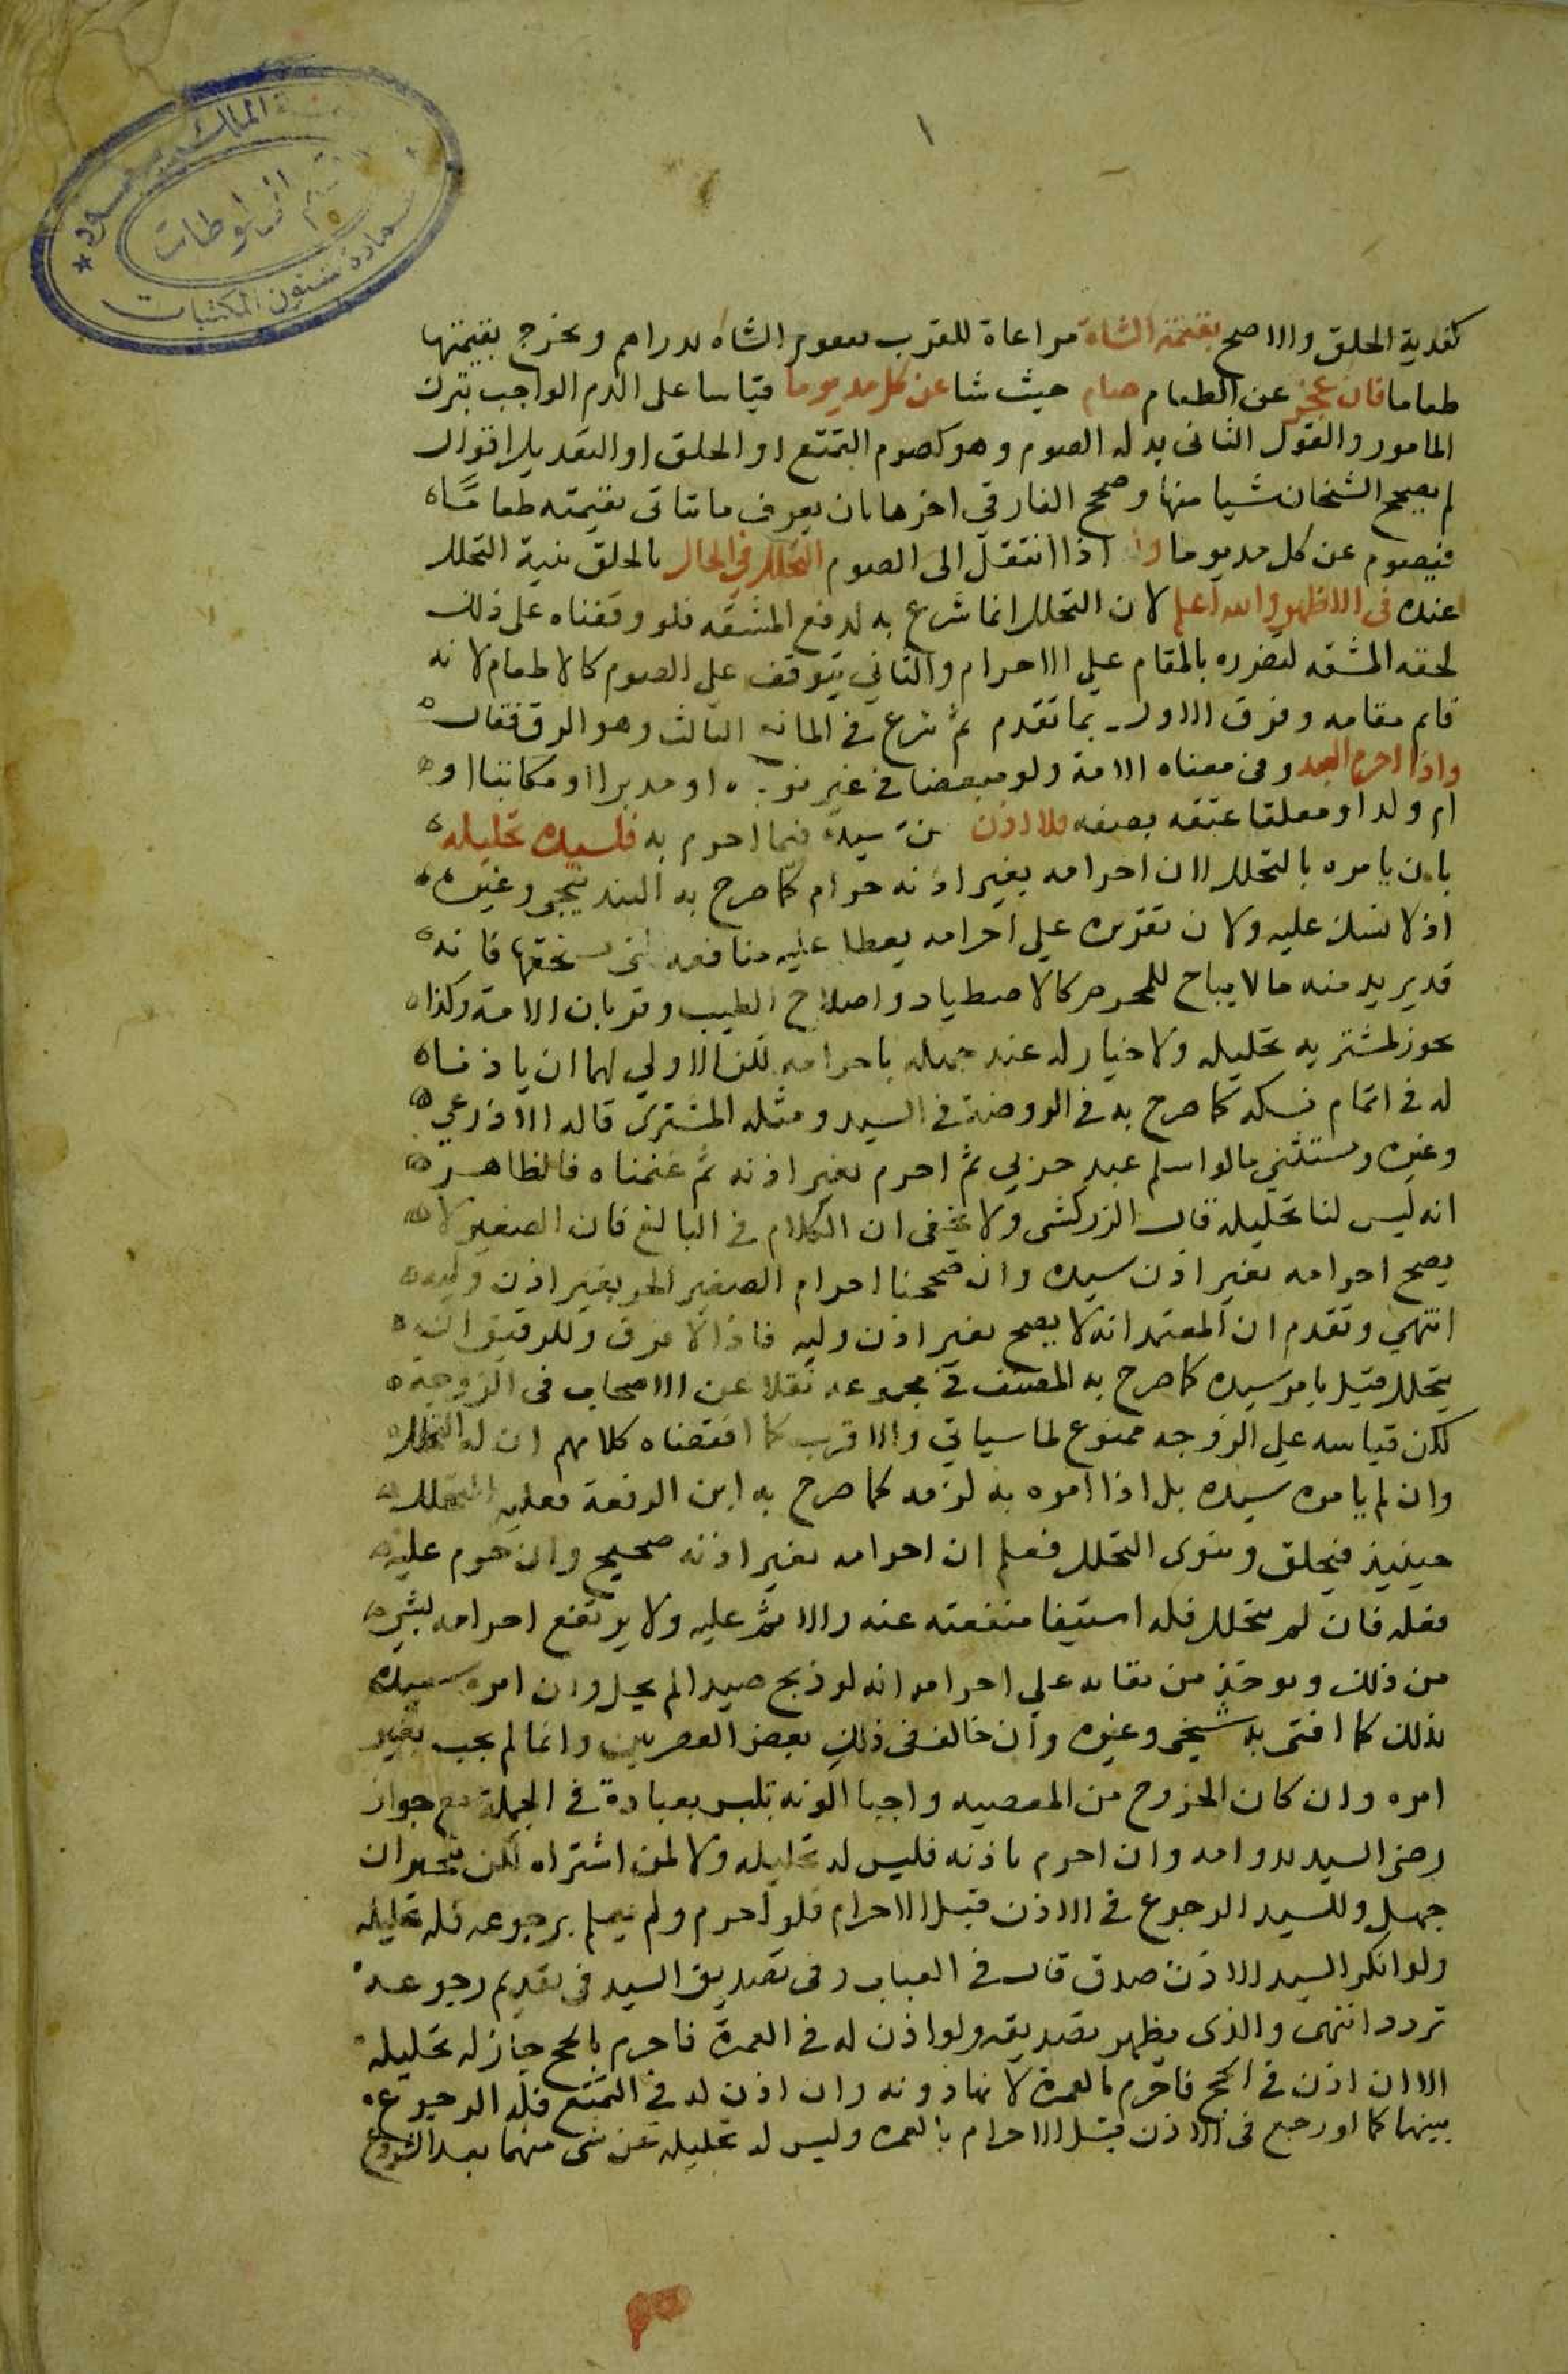 الملك سعود
قسم المخطوطات
عمادة شئون المكتبات
١
كفدية الحلق والاصح بقيمة الشاة مراعاة للقرب فيقوم الشاه بدراهم ويخرج بقيمتها
طعاما فان عجز عن الطعام صام حيث شا عن كل مد يوما قياسا على الدم الواجب بترك
المامور والقول الثانى بدله الصوم وهو كصوم التمتع او الحلق او التعديل اقوال
لم يصحح الشيخان شيا منها وصحح الفارقي اخرها بان يعرف ما تتاتى بقيمته طعاما
فيصوم عن كل مد يوما وله اذا انتقل الى الصوم التحلل في الحال بالحلق بنية التحلل
عنده فى الاظهر والله اعلم لان التحلل انما شرع به لدفع المشقه فلو وقفناه على ذلك
لحقه المشقه لتضرره بالمقام على الاحرام والثاني يتوقف على الصوم كالاطعام لانه
قام مقامه وفرق الاول بما تقدم ثم شرع في المانع الثالث وهو الرق فقال
واذا احرم العبد وفى معناه الامة ولو مبعضا في غير نوبته او مدبرا او مكاتبا او
ام ولد او معلقا عتقه بصفه بلا اذن من سيده فيما احرم به فلسيده تحليله
بان يامره بالتحلل لان احرامه بغير اذنه حرام كما صرح به البندنيجي وغيره
اذ لا نسك عليه ولان تقريره على احرامه يعطل عليه منافعه التى يستحقها فانه
قد يريد منه ما لا يباح للمحرم كالاصطياد واصلاح الطيب وقربان الامة وكذا
يجوز لمشتريه تحليله ولا خيار له عند جهله باحرامه لكن الاولى لهما ان ياذنا
له فى اتمام نسكه كما صرح به فى الروضة في السيد ومثله المشترى قاله الاذرعي
وغيره ويستثني ما لو اسلم عبد حربي ثم احرم بغير اذنه ثم غنمناه فالظاهر
انه ليس لنا تحليله قال الزركشى ولا يخفى ان الكلام في البالغ فان الصغير لا
يصح احرامه بغير اذن سيده وان صححنا احرام الصغير الحر بغير اذن وليه
انتهى وتقدم ان المعتمد انه لا يصح بغير اذن وليه فاذا لا فرق وللرقيق ان
يتحلل قبل يامر سيده كما صرح به المصنف في مجموعه نقلا عن الاصحاب فى الزوجة
لكن قياسه على الزوجه ممنوع لما سياتي والاقرب كما اقتضاه كلامهم ان له التحلل
وان لم يامره سيده بل اذا امره به لزمه كما صرح به ابن الرفعة فعليه التحلل
حينيذ فيحلق وينوى التحلل فعلم ان احرامه بغير اذنه صحيح وان حرم عليه
فعله فان لم يتحلل فله استيفا منفعته عنه والاثم عليه ولا يرتفع احرامه بشي
من ذلك ويوخذ من بقايه على احرامه انه لو ذبح صيدا لم يحل وان امره سيده
بذلك كما افتى به شيخى وغيره وان خالف فى ذلك بعض العصريين وانما لم يجب بغير
امره وان كان الخروج من المعصيه واجبا لكونه تلبس بعبادة في الجملة مع جواز
رضى السيد بدوامه وان احرم باذنه فليس له تحليله ولا لمن اشتراه لكن يتخير ان
جهل وللسيد الرجوع فى الاذن قبل الاحرام فلو احرم ولم يعلم برجوعه فله تحليله
ولو انكر السيد الاذن صدق قال فى العباب وفى تصديق السيد فى تقديم رجوعه
تردد انتهى والذى يظهر تصديقه ولو اذن له فى العمرة فاحرم بالحج جاز له تحليله
لا ان اذن فى الحج فاحرم بالعمرة لانها دونه وان اذن له فى التمتع فله الرجوع
بينهما كما لو رجع فى الاذن قبل الاحرام بالعمره وليس له تحليله عن شى منهما بعد الشروع